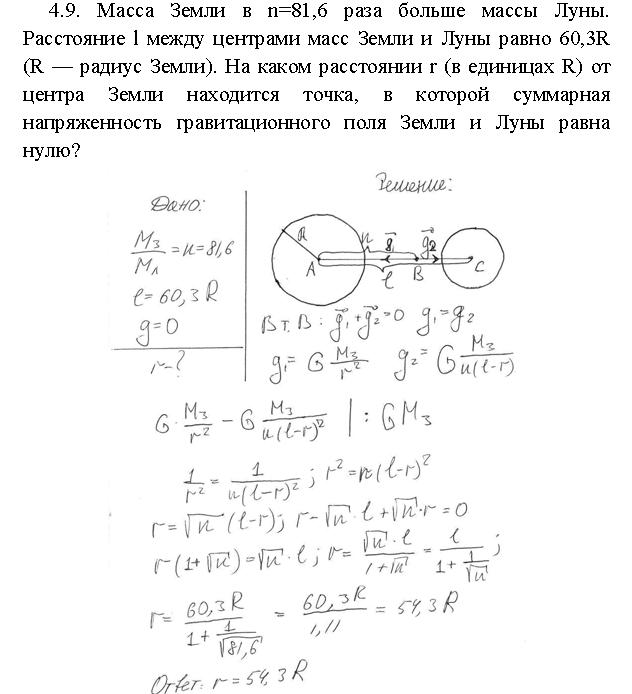 4.9. Масса Земли в n=81,6 раза больше массы Луны.
Расстояние l между центрами масс Земли и Луны равно 60,3R
(R — радиус Земли). На каком расстоянии r (в единицах R) от
центра Земли находится точка, в которой суммарная
напряженность гравитационного поля Земли и Луны равна
нулю?
Дано:
M_З/M_Л = n = 81,6
l = 60,3 R
g = 0
r - ?
Решение:
R r g⃗₁ g⃗₂
A l B C
В т. В: g⃗₁ + g⃗₂ = 0 g₁ = g₂
g₁ = G M_З/r² g₂ = G M_З/n(l-r)
G · M_З/r² - G M_З/n(l-r)² | : GM_З
1/r² = 1/n(l-r)² ; r² = n(l-r)²
r = √n (l-r); r - √n · l + √n · r = 0
r(1+√n) = √n · l ; r = √n · l/1+√n = l/1+1/√n ;
r = 60,3R/1+1/√81,6 = 60,3R/1,11 = 54,3R
Ответ: r = 54,3R